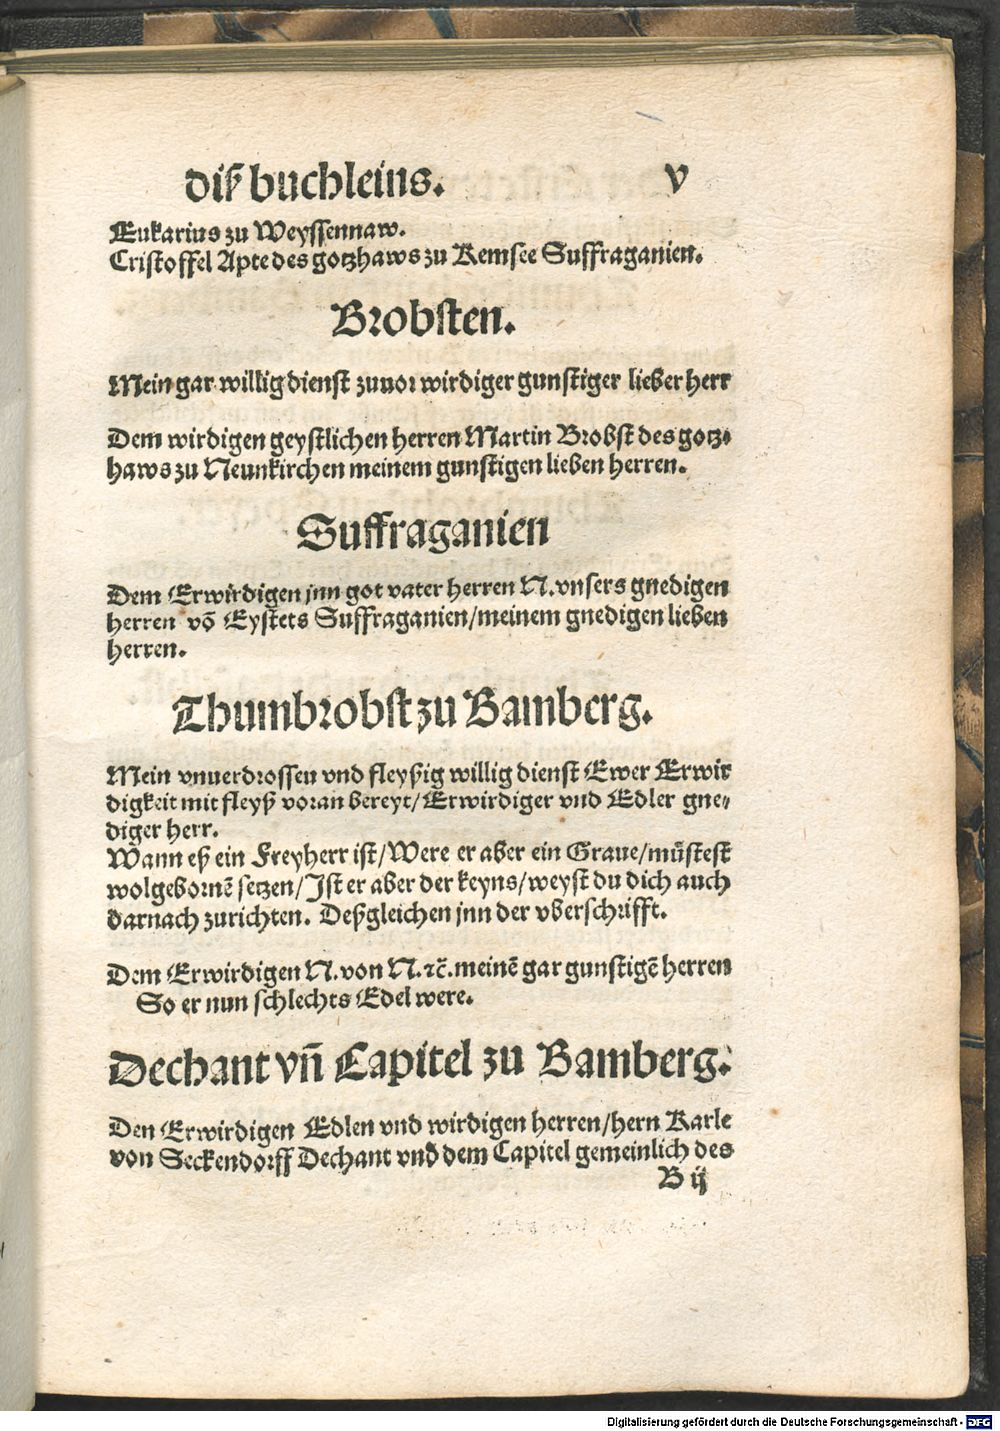 diß buchleins. v
Eukarius zu Weyssennaw.
Cristoffel Apte des gotzhaws zu Remsee Suffraganien.
Brobsten.
Mein gar willig dienst zuuor wirdiger gunstiger lieber herr
Dem wirdigen geystlichen herren Martin Brobst des gotz-
haws zu Neunkirchen meinem gunstigen lieben herren.
Suffraganien
Dem Erwirdigen jnn got vater herren N. vnsers gnedigen
herren vō Eystets Suffraganien/meinem gnedigen lieben
herren.
Thumbrobst zu Bamberg.
Mein vnuerdrossen vnd fleyßig willig dienst Ewer Erwir
digkeit mit fleyß voran bereyt/Erwirdiger vnd Edler gne-
diger herr.
Wann eß ein Freyherr ist/Were er aber ein Graue/můstest
wolgebornē setzen/Ist er aber der keyns/weyst du dich auch
darnach zurichten. Deßgleichen jnn der vberschrifft.
Dem Erwirdigen N. von N. ꝛc̄. meinē gar gunstigē herren
So er nun schlechts Edel were.
Dechant vn̄ Capitel zu Bamberg.
Den Erwirdigen Edlen vnd wirdigen herren/hern Karle
von Seckendorff Dechant vnd dem Capitel gemeinlich des
B ij
Digitalisierung gefördert durch die Deutsche Forschungsgemeinschaft - DFG